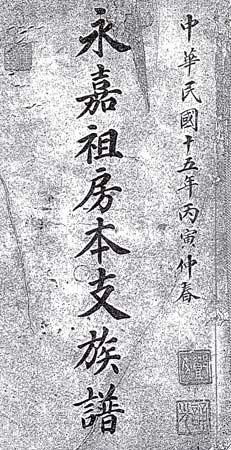 中華民國十五年丙寅仲春
永嘉祖房本支族譜